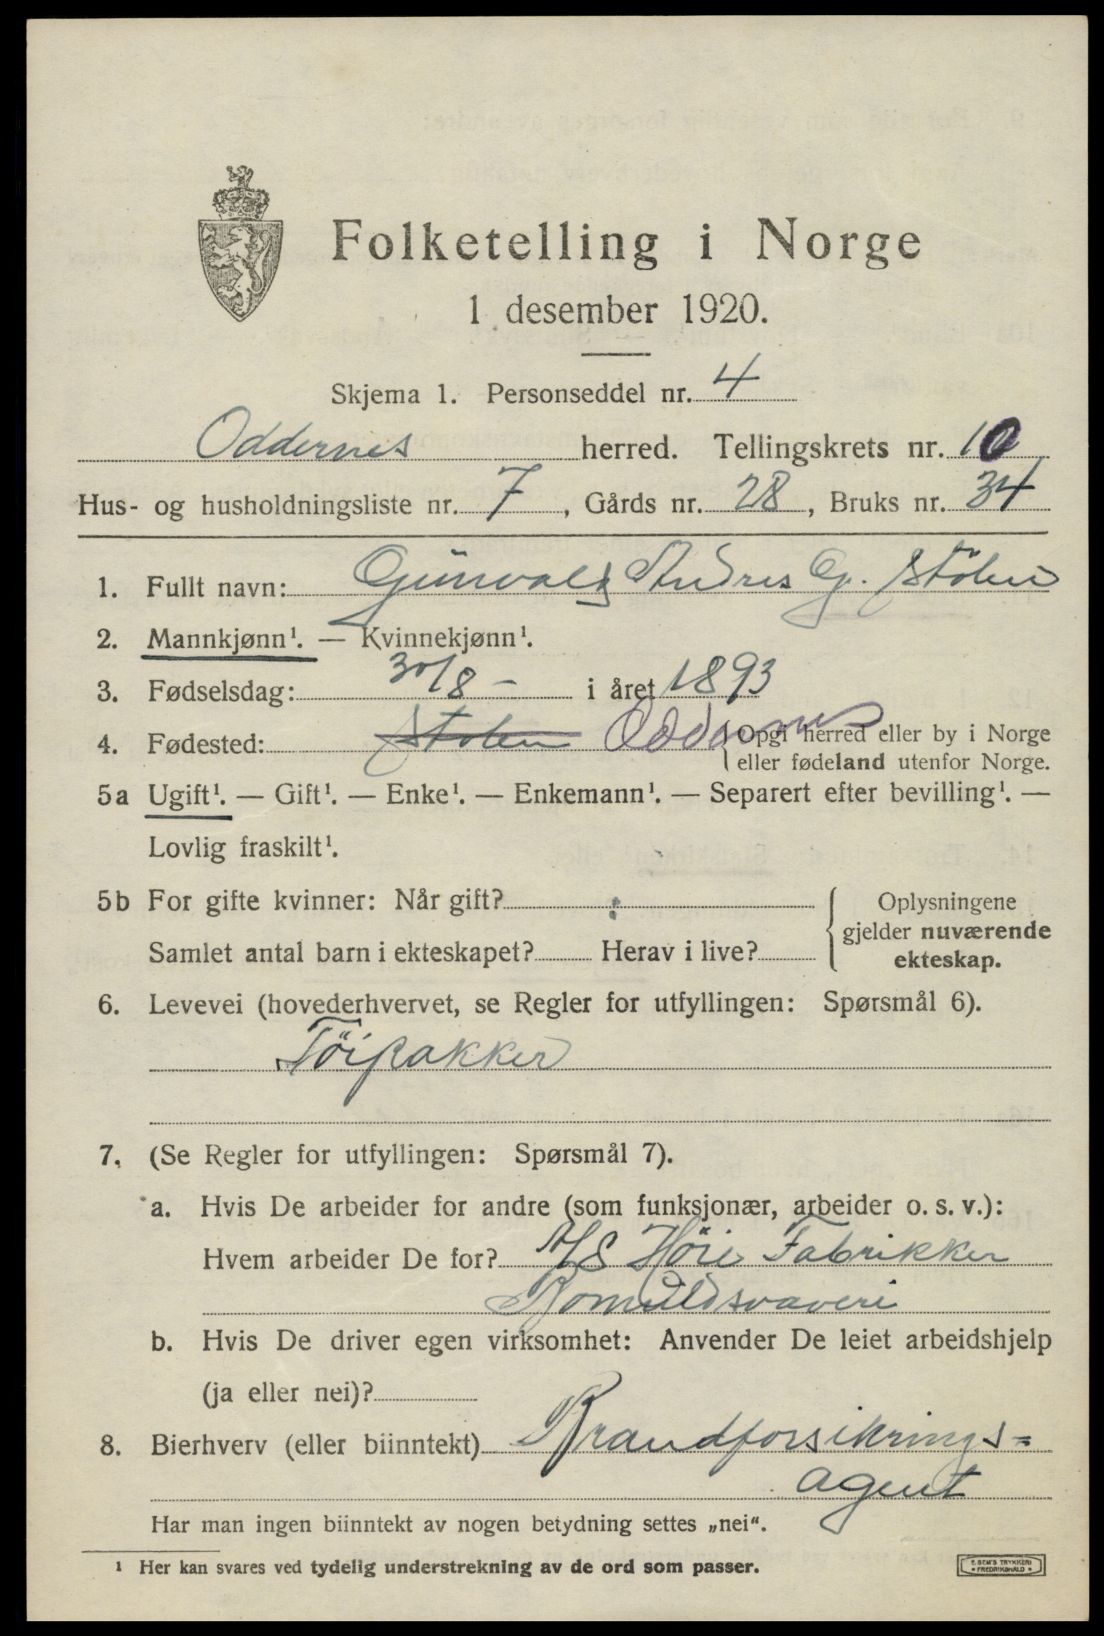 Folketelling i Norge
1 desember 1920.
Skjema 1. Personseddel nr. 4
Oddernes herred. Tellingskrets nr. 10
Hus- og husholdningsliste nr. 7, Gårds nr. 28, Bruks nr. 34
1. Fullt navn: Gunvald Andres G. Stölen
2. Mannkjønn¹. — Kvinnekjønn¹.
3. Fødselsdag: 30/8 - i året 1893
4. Fødested: Stölen Oddernes Opgi herred eller by i Norge
eller fødeland utenfor Norge.
5a Ugift¹. — Gift¹. — Enke¹. — Enkemann¹. — Separert efter bevilling¹. —
Lovlig fraskilt¹.
5b For gifte kvinner: Når gift?
Samlet antal barn i ekteskapet? Herav i live?
Oplysningene
gjelder nuværende
ekteskap.
6. Levevei (hovederhvervet, se Regler for utfyllingen: Spørsmål 6).
Töipakker
7. (Se Regler for utfyllingen: Spørsmål 7).
a. Hvis De arbeider for andre (som funksjonær, arbeider o. s. v.):
Hvem arbeider De for? A/S Höie Fabrikker
Bomuldsvaveri
b. Hvis De driver egen virksomhet: Anvender De leiet arbeidshjelp
(ja eller nei)?
8. Bierhverv (eller biinntekt) Brandforsikrings=
agent
Har man ingen biinntekt av nogen betydning settes „nei“.
¹ Her kan svares ved tydelig understrekning av de ord som passer.
E. SEM'S TRYKKERI
• FREDRIKSHALD •